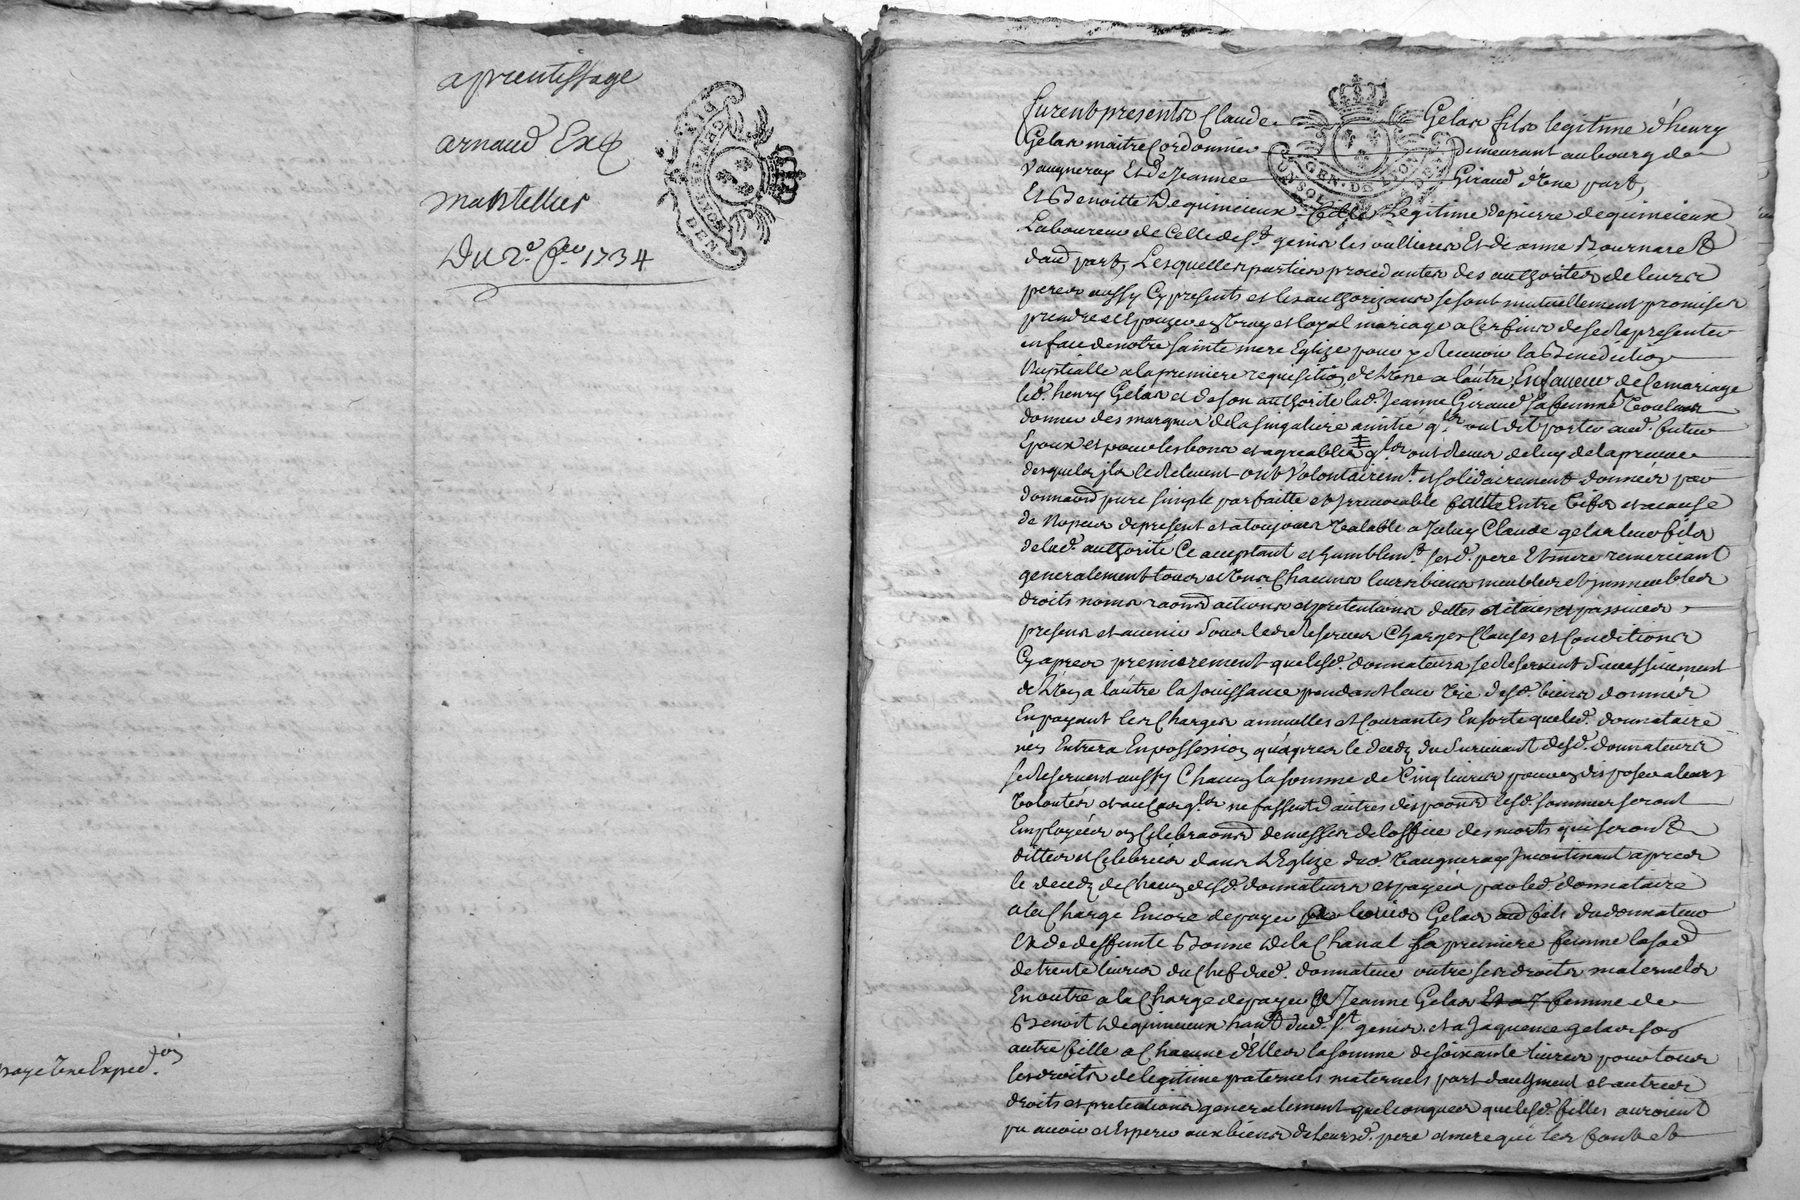 aprentissage
arnaud Et
martellier
Du 2e. 1734
GEN. DE LYON
paye une Exped.on
furent presents Claude Gelas fils legitime d'henry
Gelas maitre Cordonnier demeurant au bourg de
Vaugneray Et de Jeanne Giraud d'une part,
Et Benoitte Dequincieux fille Legitime de pierre dequincieux
Laboureur de Celle de St. genis les oullieres Et de anne Bournare
d'aud part, Lesquelles parties proced antes des authorités de leurs
peres aussy Cy presents et les authorizans se sont mutuellement promises
prendre et Epouzer en vray et loyal mariage a Ces fins de se Representer
en face de notre Sainte mere Eglize pour y Recevoir la Benediction
Nuptialle a la premiere requisition de L'une a l'autre, En faveur de Ce mariage
led. henry Gelas et de son authorité lad. Jeanne Giraud sa femme voulans
donner des marques de la singaliere amitié qls. ont dit porter aud. futur
Epoux et pour les bons et agreables qls ont Receus de luy de la preuve
desquels jls le Relevent ont Volontairemt. et solidairement donnés par
donnaond pure simple parfaitte et Irrevocable faitte Entre vifs et a cause
de Nopces de present et a toujours valable a Jceluy Claude gelas leur fils
de lad. authorité Ce acceptant et humblemt. sesd. pere Et mere remerciant
generalement tous et Uns Chacuns leurs biens meubles et jmmeubles
droits noms raonsd actions et pretentions dettes actives et passives
presens et avenir Sous les Reserves Charges Clauses et Conditions
Cy apres premierement que lesd. donnateurs se Reservent Successivement
de L'un a l'autre la jouissance pendant leur vie desd. biens donnés
En payant les Charges annuelles et Courantes En sorte que led. donnataire
n'en Entrera En possession qu'apres le decedz du Survivant desd. donnateurs
se Reservent aussy Chacun la somme de Cinq livres pour en disposer a leurs
volontés et au Cas qls ne fassent d'autres dispoond lesd. sommes seront
Employées en Celebraonsd de messes de l'office des morts qui seront
dittes et Celebrées dans L'Eglize dud Vaugneray Incontinant apres
le decedz de Chacun desd. donnateurs et payées par led. donnataire
a la Charge Encore de payer a louis Gelas aud fils du donnateur
Et de deffunte Bonne De la Chanal sa premiere femme la sod
de trente livres du Chef dud. donnateur outre ses droits maternels
En outre a la Charge de payer a Jeanne Gelas femme de
Benoit Dequincieux hant. dud. St. genis et a Jaqueme gelas son
autre fille a Chacune d'Elles la somme de soixante livres pour tous
les droits de legitime paternels maternels part d'augment et autres
droits et pretentions generalement quelconques que lesd. filles auroient
pu avoir et Esperer aux biens de leursd. pere et mere qui les font et